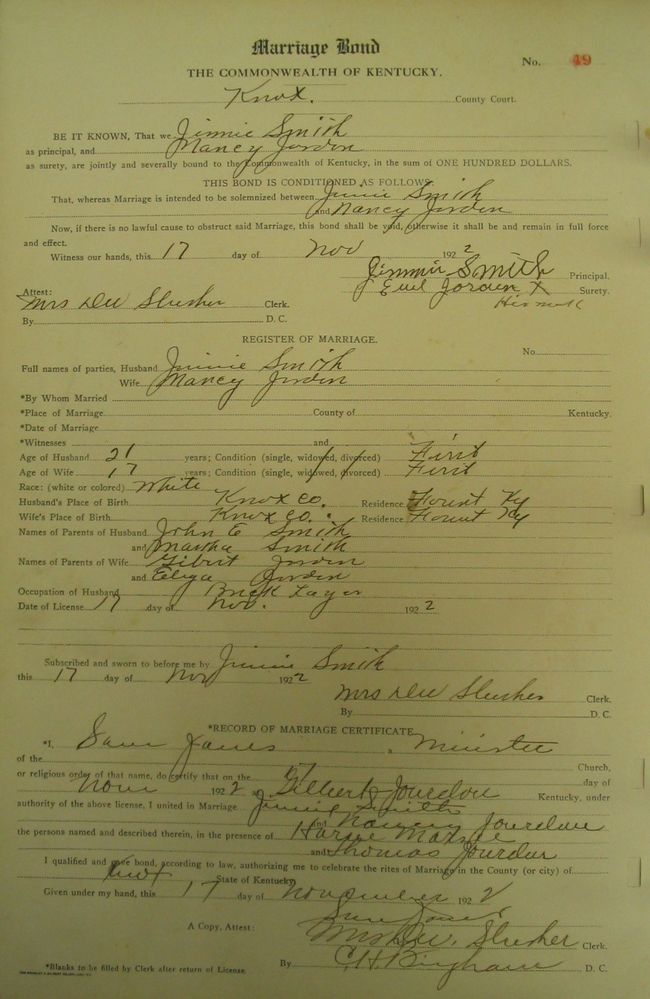 Marriage Bond
No. 49
THE COMMONWEALTH OF KENTUCKY.
Knox. County Court.
BE IT KNOWN, That we Jimmie Smith
as principal, and Nancy Jordin
as surety, are jointly and severally bound to the Commonwealth of Kentucky, in the sum of ONE HUNDRED DOLLARS.
THIS BOND IS CONDITIONED AS FOLLOWS
That, whereas Marriage is intended to be solemnized between Jimie Smith
and Nancy Jordin
Now, if there is no lawful cause to obstruct said Marriage, this bond shall be void, otherwise it shall be and remain in full force
and effect.
Witness our hands, this 17 day of Nov 1922
Jimmie Smith Principal.
Jorden X Surety.
Attest:
Mrs Dee Slusher Clerk.
His mark
By D. C.
REGISTER OF MARRIAGE.
No.
Full names of parties, Husband Jimmie Smith
Wife Nancy Jordin
*By Whom Married
*Place of Marriage County of Kentucky.
*Date of Marriage
*Witnesses and
Age of Husband 21 years; Condition (single, widowed, divorced) First
Age of Wife 17 years; Condition (single, widowed, divorced) First
Race: (white or colored) White
Husband's Place of Birth Knox Co. Residence Flount Ky
Wife's Place of Birth Knox Co. Residence Flount Ky
Names of Parents of Husband John E Smith
and Martha Smith
Names of Parents of Wife Gilbert Jordin
and Eliza Jordin
Occupation of Husband Brick Layer
Date of License 17 day of Nov. 1922
Subscribed and sworn to before me by Jimmie Smith
this 17 day of Nov 1922
Mrs Dee Slusher Clerk.
By D. C.
*RECORD OF MARRIAGE CERTIFICATE
*I, Sam Jones a Minister
of the Church,
or religious order of that name, do certify that on the 17 day of
Novm 1922 at Gilbert Jourdon Kentucky, under
authority of the above license, I united in Marriage Jimmie Smith
and Nancy Jourdon
the persons named and described therein, in the presence of
and Thomas Jourdon
I qualified and gave bond, according to law, authorizing me to celebrate the rites of Marriage in the County (or city) of
Knox State of Kentucky
Given under my hand, this 17 day of November 1922
Sam Jones
A Copy, Attest: Mrs Dee. Slusher Clerk.
By C. H. Bingham D. C.
*Blanks to be filled by Clerk after return of License.